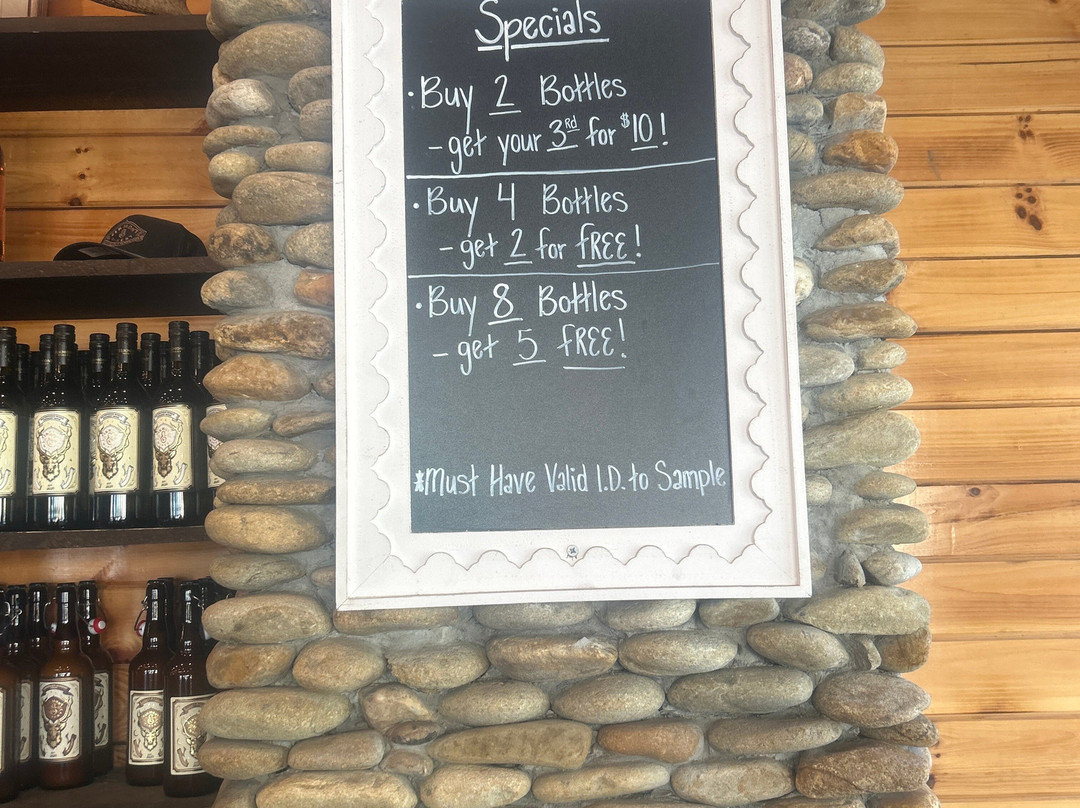 Specials
· Buy 2 Bottles
- get your 3Rd for $10!
· Buy 4 Bottles
- get 2 for FREE!
· Buy 8 Bottles
- get 5 FREE!
*Must Have Valid I.D. to Sample